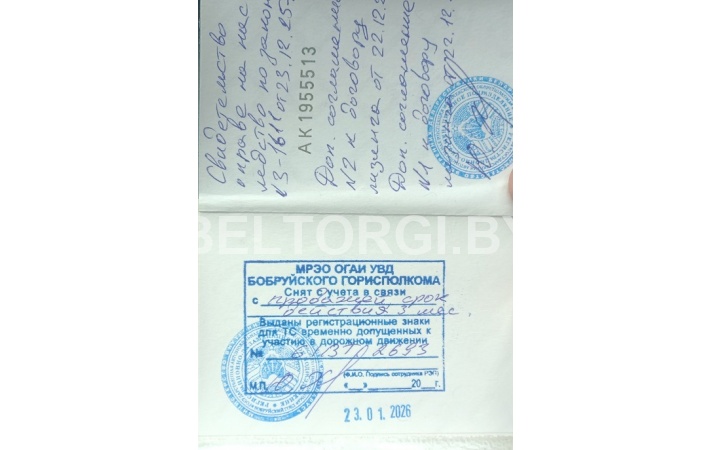 Свидетельство
о праве на нас
ледство по закон
от 23.12.25
АК1955513
Доп. соглашени
N2 к договору
лизинга от 22.12.2
Доп. соглашение
N1 к договору
BELTORGI.BY
МРЭО ОГАИ УВД
БОБРУЙСКОГО ГОРИСПОЛКОМА
Снят с учета в связи
с продажей срок
действия 3 мес.
Выданы регистрационные знаки
для ТС временно допущенных к
участию в дорожном движении
№
М.П.
(Ф.И.О. Подпись сотрудника РЭП)
«__»______20__г.
23.01.2026